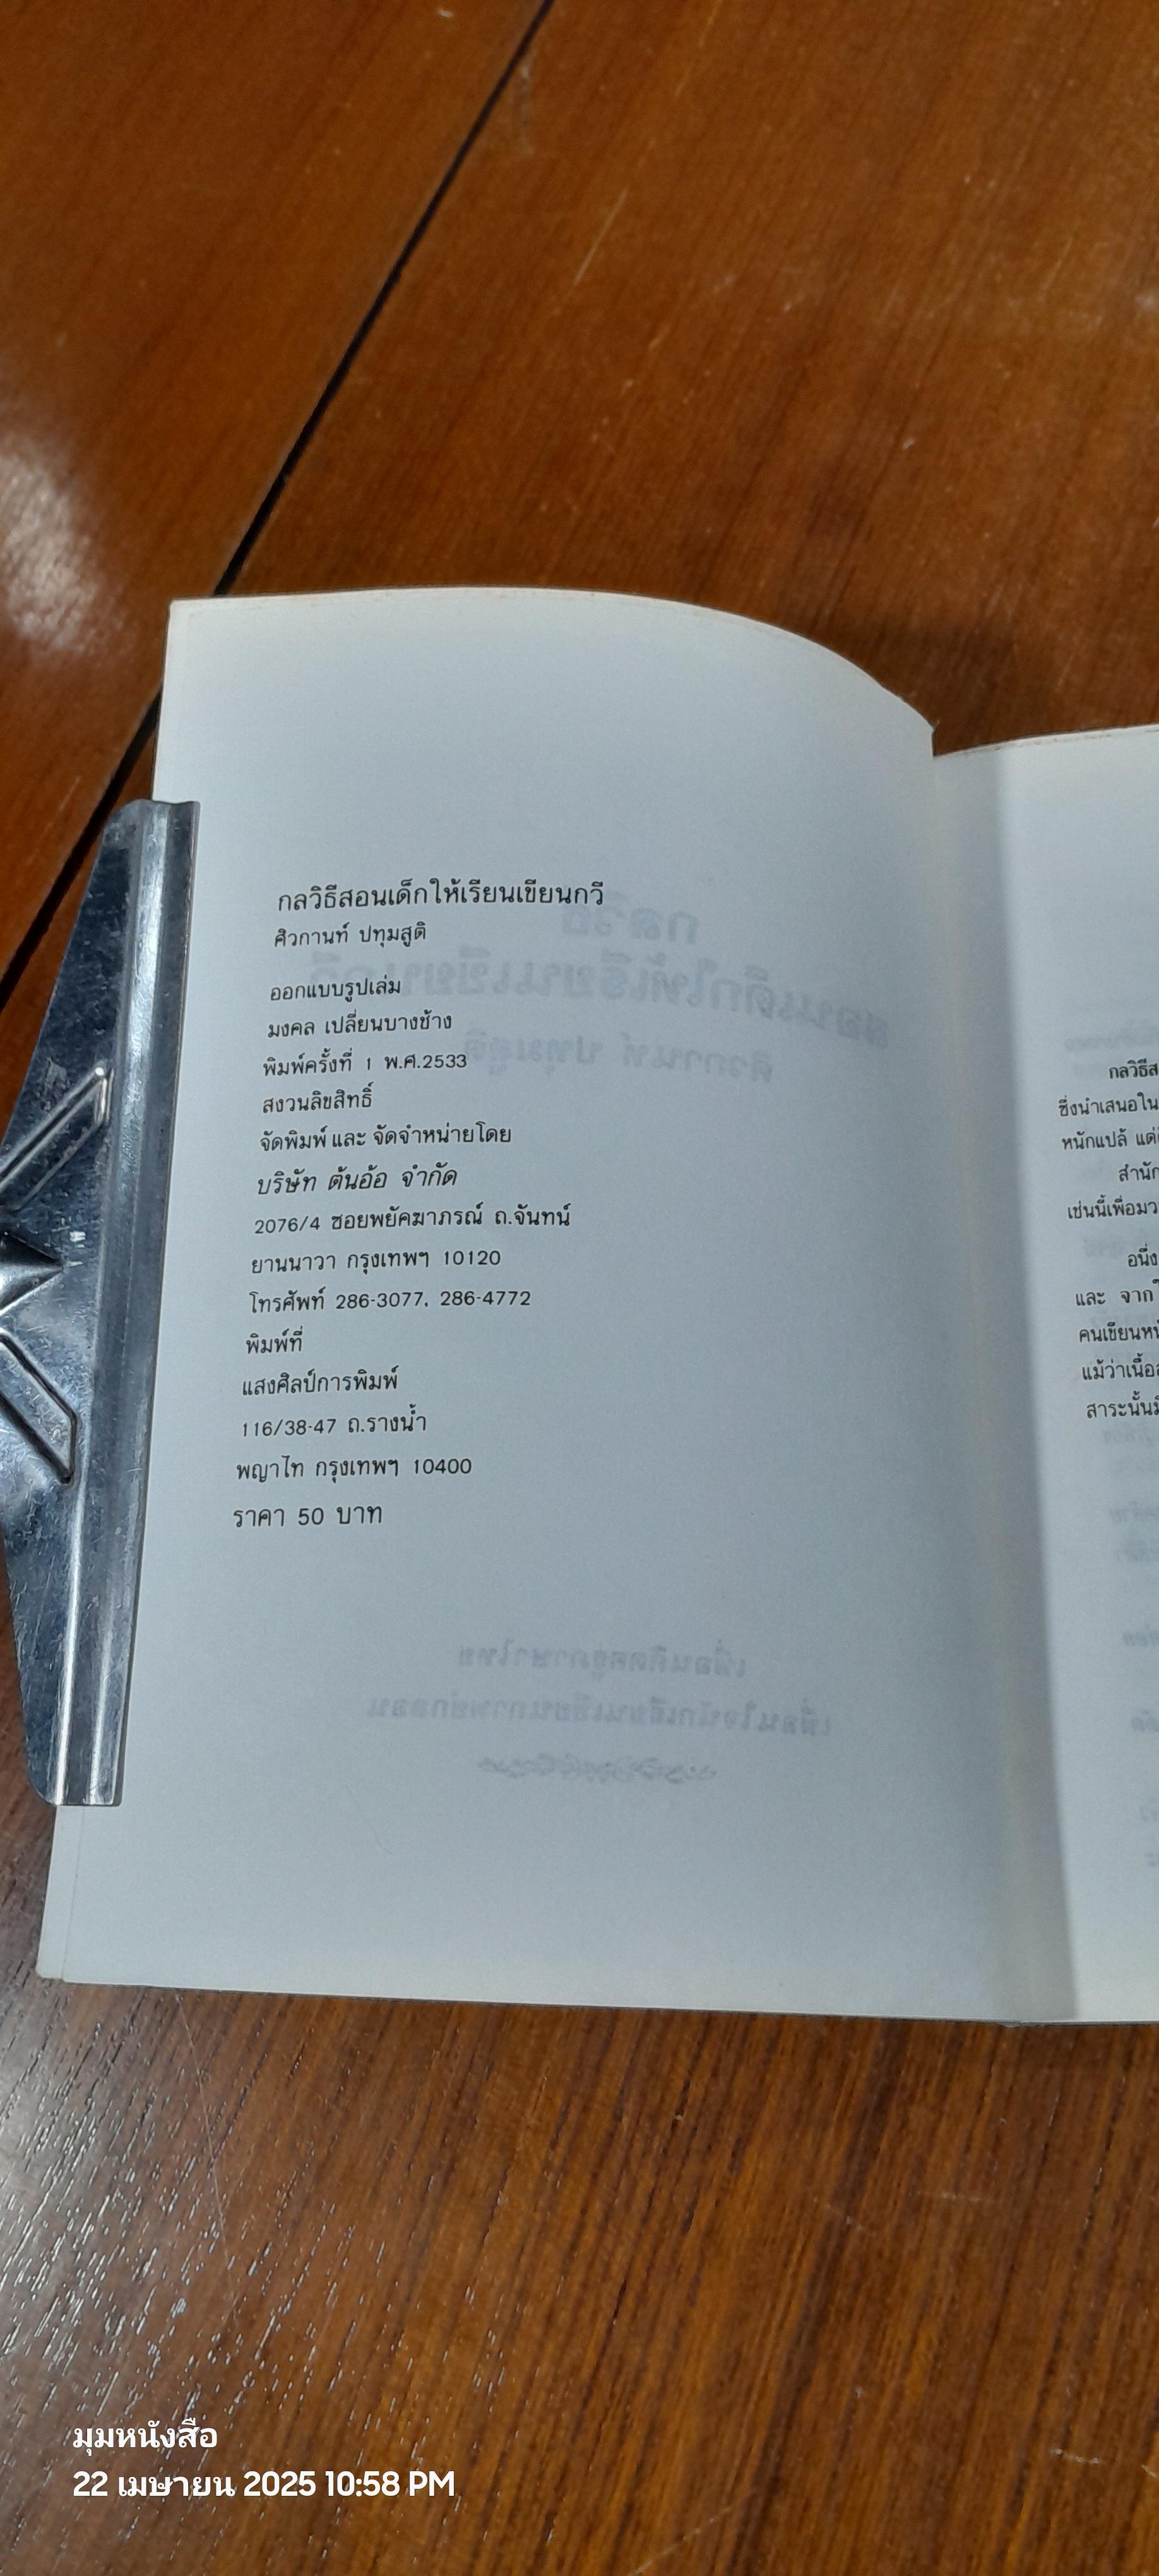 กลวิธีสอนเด็กให้เรียนเขียนกวี
ศิวกานท์ ปทุมสูติ
ออกแบบรูปเล่ม
มงคล เปลี่ยนบางช้าง
พิมพ์ครั้งที่ 1 พ.ศ.2533
สงวนลิขสิทธิ์
จัดพิมพ์ และ จัดจำหน่ายโดย
บริษัท ต้นอ้อ จำกัด
2076/4 ซอยพยัคฆาภรณ์ ถ.จันทน์
ยานนาวา กรุงเทพฯ 10120
โทรศัพท์ 286-3077, 286-4772
พิมพ์ที่
แสงศิลป์การพิมพ์
116/38-47 ถ.รางน้ำ
พญาไท กรุงเทพฯ 10400
ราคา 50 บาท
กลวิธีส
ซึ่งนำเสนอใน
หนักแปล้
สำนัก
เช่นนี้เพื่อมว
อนึ่ง
และ จาก
คนเขียนหน
แม้ว่าเนื้อ
สาระนั้น
มุมหนังสือ
22 เมษายน 2025 10:58 PM